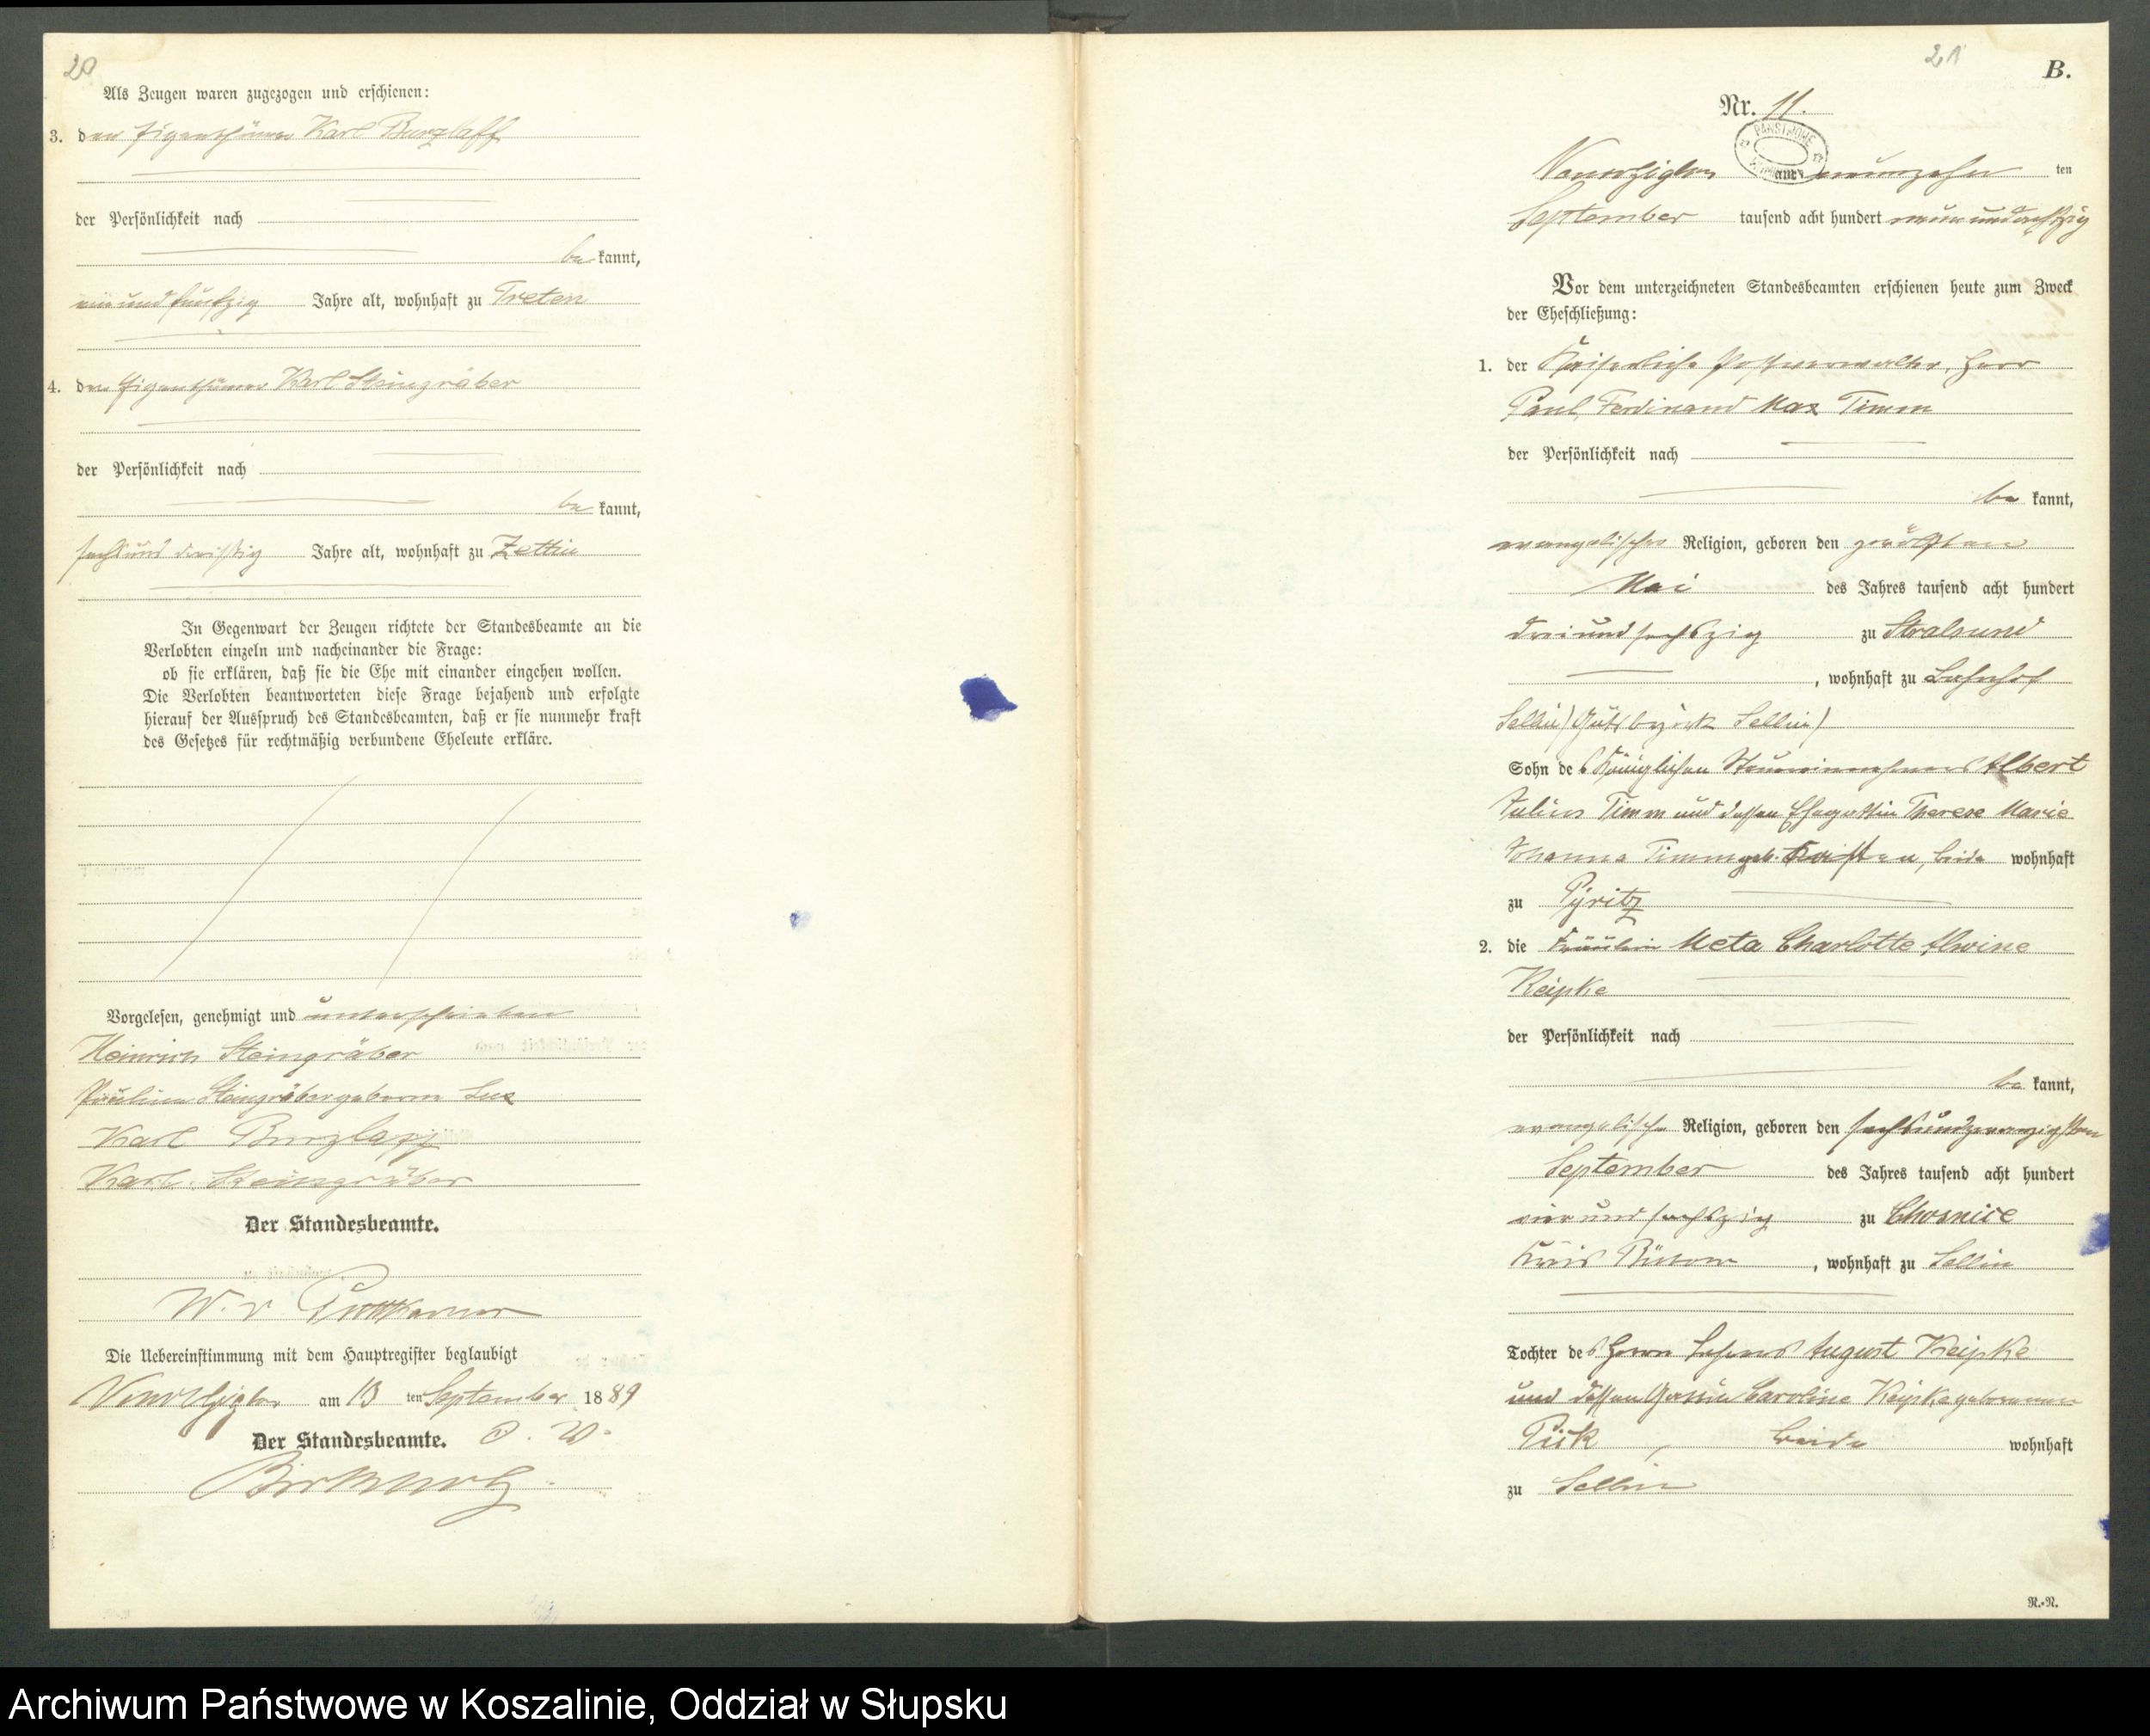 20
Als Zeugen waren zugezogen und erschienen:
3. den Eigenthümer Karl Burzlaff
der Persönlichkeit nach
be kannt,
und fünfzig Jahre alt, wohnhaft zu Treten
4. den Eigenthümer Karl Steingräber
der Persönlichkeit nach
be kannt,
sechsund dreißig Jahre alt, wohnhaft zu Zettin
In Gegenwart der Zeugen richtete der Standesbeamte an die
Verlobten einzeln und nacheinander die Frage:
ob sie erklären, daß sie die Ehe mit einander eingehen wollen.
Die Verlobten beantworteten diese Frage bejahend und erfolgte
hierauf der Ausspruch des Standesbeamten, daß er sie nunmehr kraft
des Gesetzes für rechtmäßig verbundene Eheleute erkläre.
Vorgelesen, genehmigt und unterschrieben
Heinrich Steingräber
Pauline Steingräber geborene
Karl Burzlaff
Karl Steingräber
Der Standesbeamte.
W. v Puttkamer
Die Uebereinstimmung mit dem Hauptregister beglaubigt
am 13 ten September 1889
Der Standesbeamte.
21
B.
Nr. 11.
am neunzehn ten
September tausend acht hundert neun und achtzig
Vor dem unterzeichneten Standesbeamten erschienen heute zum Zweck
der Eheschließung:
1. der Kaiserliche Postverwalter, Herr
Paul, Ferdinand Max Timm
der Persönlichkeit nach
be kannt,
evangelischer Religion, geboren den zwölften
Mai des Jahres tausend acht hundert
dreiund sechszig zu Stralsund
, wohnhaft zu Bahnhof
Sellin (Gutsbezirk Sellin)
Sohn des Königlichen Steuereinnehmers Albert
Julius Timm und dessen Ehegattin Therese Marie
Johanna Timm geb. beide wohnhaft
zu Pyritz
2. die Fräulein Meta Charlotte Alwine
Keipke
der Persönlichkeit nach
be kannt,
evangelische Religion, geboren den sechsundzwanzigsten
September des Jahres tausend acht hundert
vier und sechszig zu Chosnice
Kreis Bütow, wohnhaft zu Sellin
Tochter des Herrn August Keipke
und dessen Gattin Caroline Keipke geborenen
Pick, beide wohnhaft
zu Sellin
R.-N.
Archiwum Państwowe w Koszalinie, Oddział w Słupsku